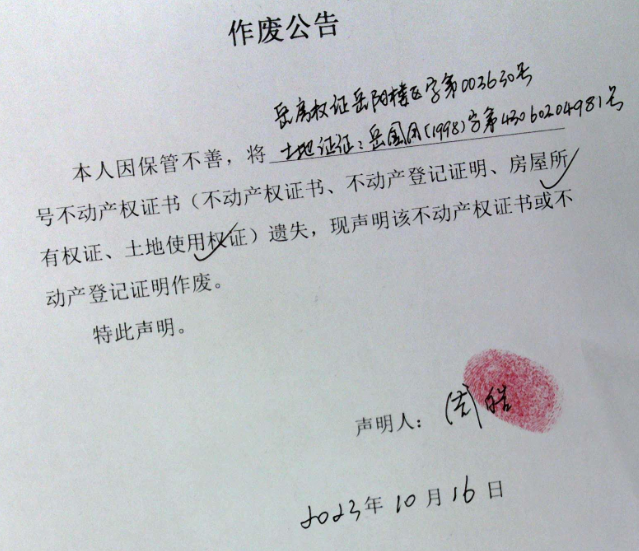 作废公告
岳房权证岳阳楼区字第003630号
本人因保管不善，将土地证证：岳国用(1998)字第43060204981号
号不动产权证书（不动产权证书、不动产登记证明、房屋所
有权证、土地使用权证）遗失，现声明该不动产权证书或不
动产登记证明作废。
特此声明。
声明人：
2023年10月16日